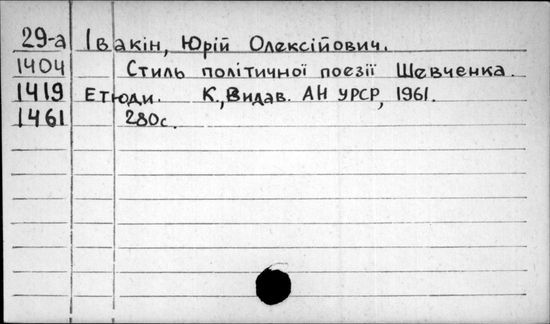 29-а Івакін, Юрій Олексійович.
1404 Стиль політичної поезії Шевченка.
1419 Етюди. К., Видав. АН УРСР, 1961.
1461 280с.